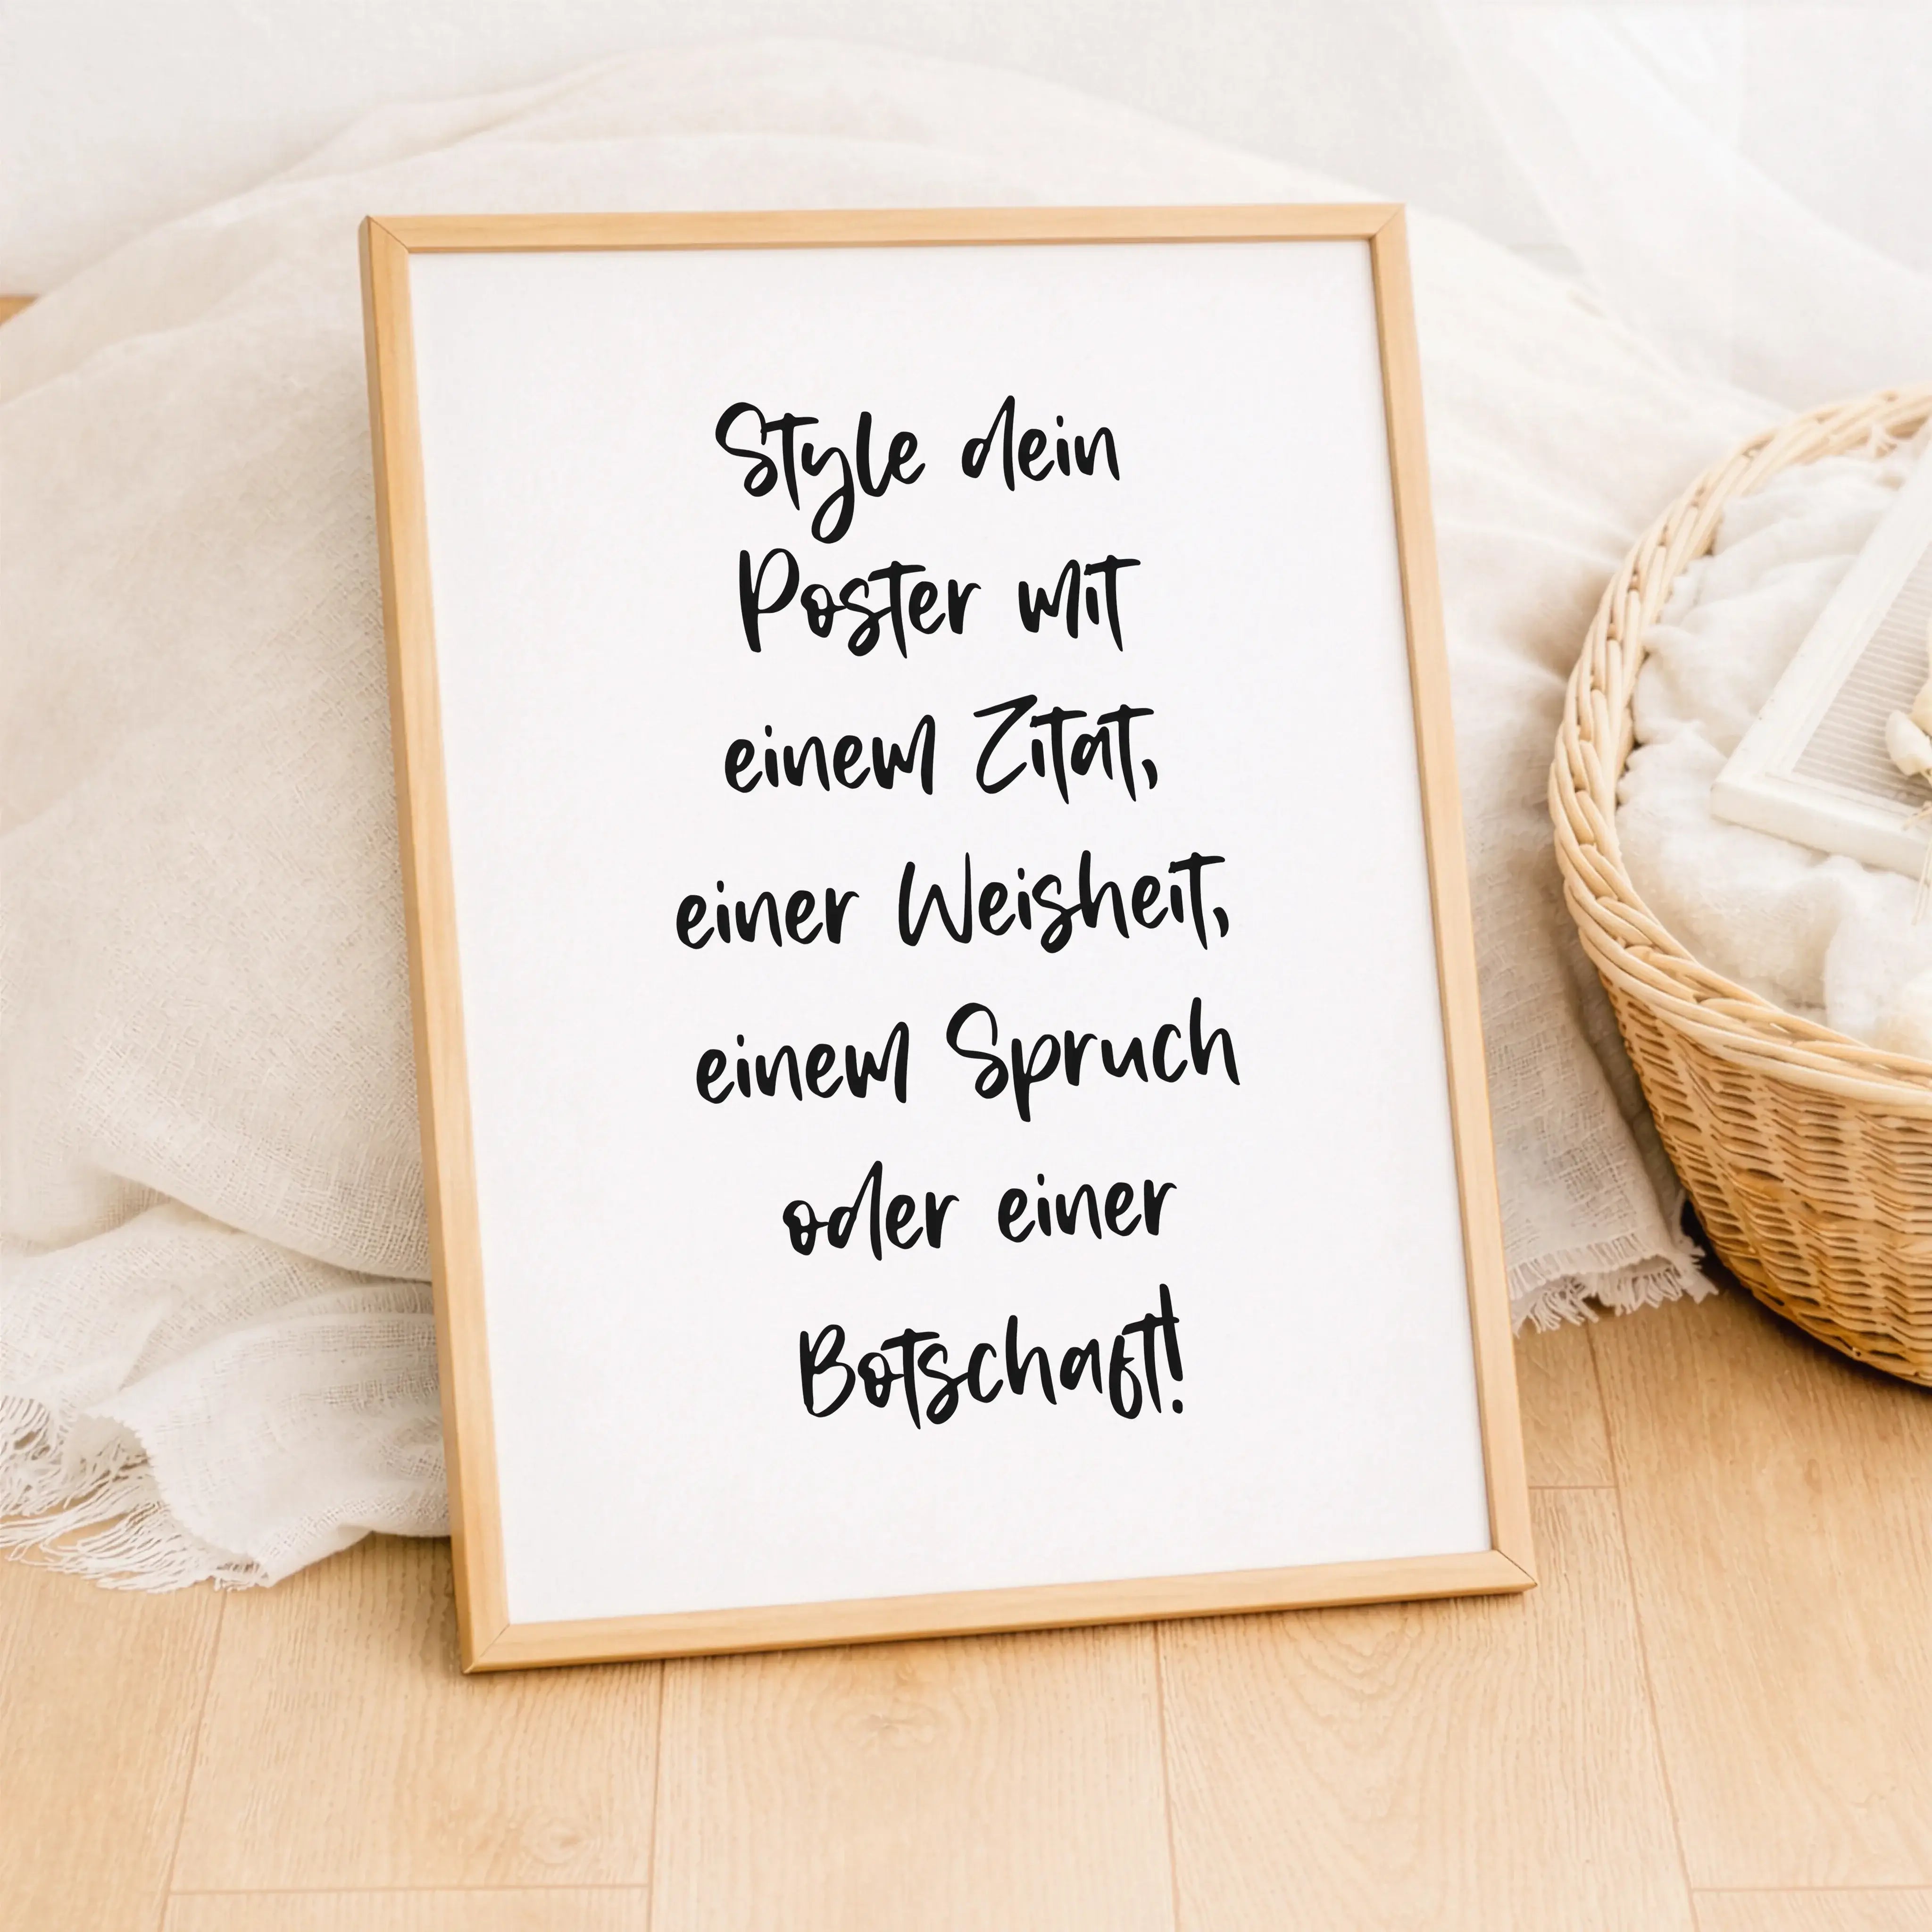 Style dein
Poster mit
einem Zitat,
einer Weisheit,
einem Spruch
oder einer
Botschaft!